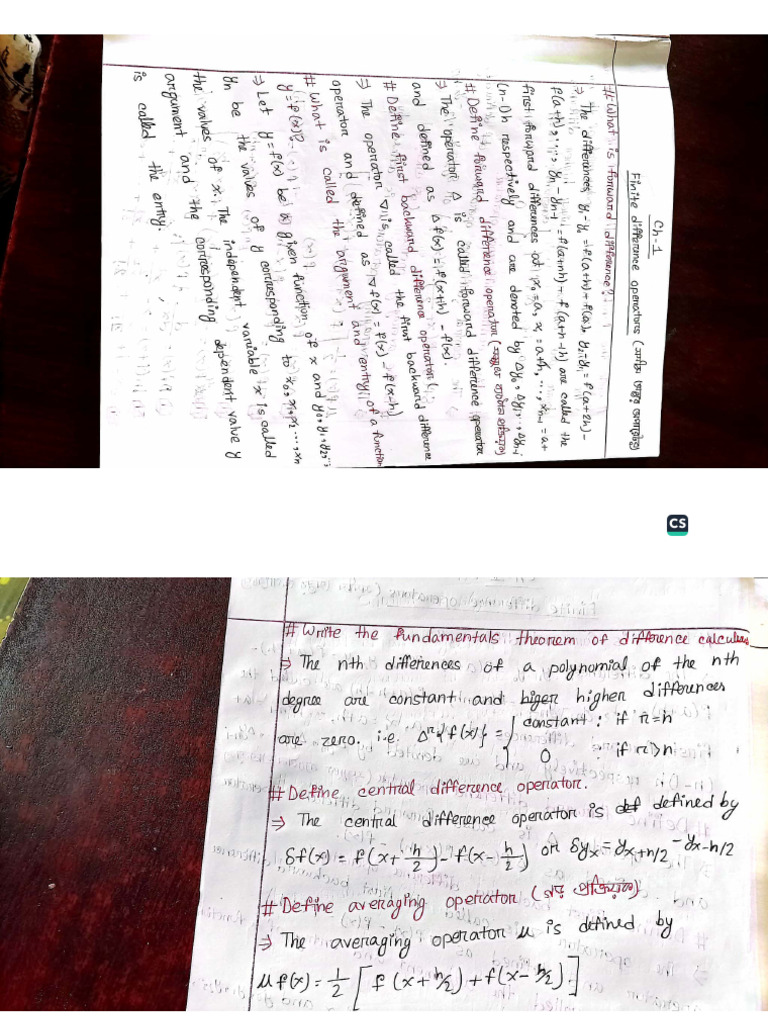 Ch-1
Finite difference operators
# What is forward difference?
⇒ The differences y₁-y₀ = f(a+h)+f(a), y₂-y₁ = f(a+2h)-
f(a+h), ..., yn-yn-1 = f(a+nh)-f(a+n-1h) are called the
first forward differences at x₀=a, x₁=a+h, ..., xn-1 = a+
(n-1)h respectively and are denoted by Δy₀, Δy₁, .., Δyn-1
# Define forward difference operator
⇒ The operator Δ is called forward difference operator
and defined as Δf(x) = f(x+h) - f(x).
# Define first backward difference operator.
⇒ The operator ∇ is called the first backward difference
operator and defined as ∇f(x) = f(x) - f(x-h)
# What is called the argument and entry of a function
y=f(x)?
⇒ Let y=f(x) be a given function of x and y₀,y₁,y₂,...,
yn be the values of y corresponding to x₀,x₁,x₂...,xn
the values of x. The independent variable x is called
argument and the corresponding dependent value y
is called the entry.
CS
# Write the fundamentals theorem of difference calculus
⇒ The nth differences of a polynomial of the nth
degree are constant and higer higher differences
are zero. i.e. Δʳ{f(x)} = { constant ; if r=n
0 ; if r>n
# Define central difference operator.
⇒ The central difference operator is def defined by
δf(x) = f(x+h/2) - f(x-h/2) or δyx = yx+h/2 - yx-h/2
# Define averaging operator
⇒ The averaging operator μ is defined by
μf(x) = 1/2 [f(x+h/2)+f(x-h/2)]